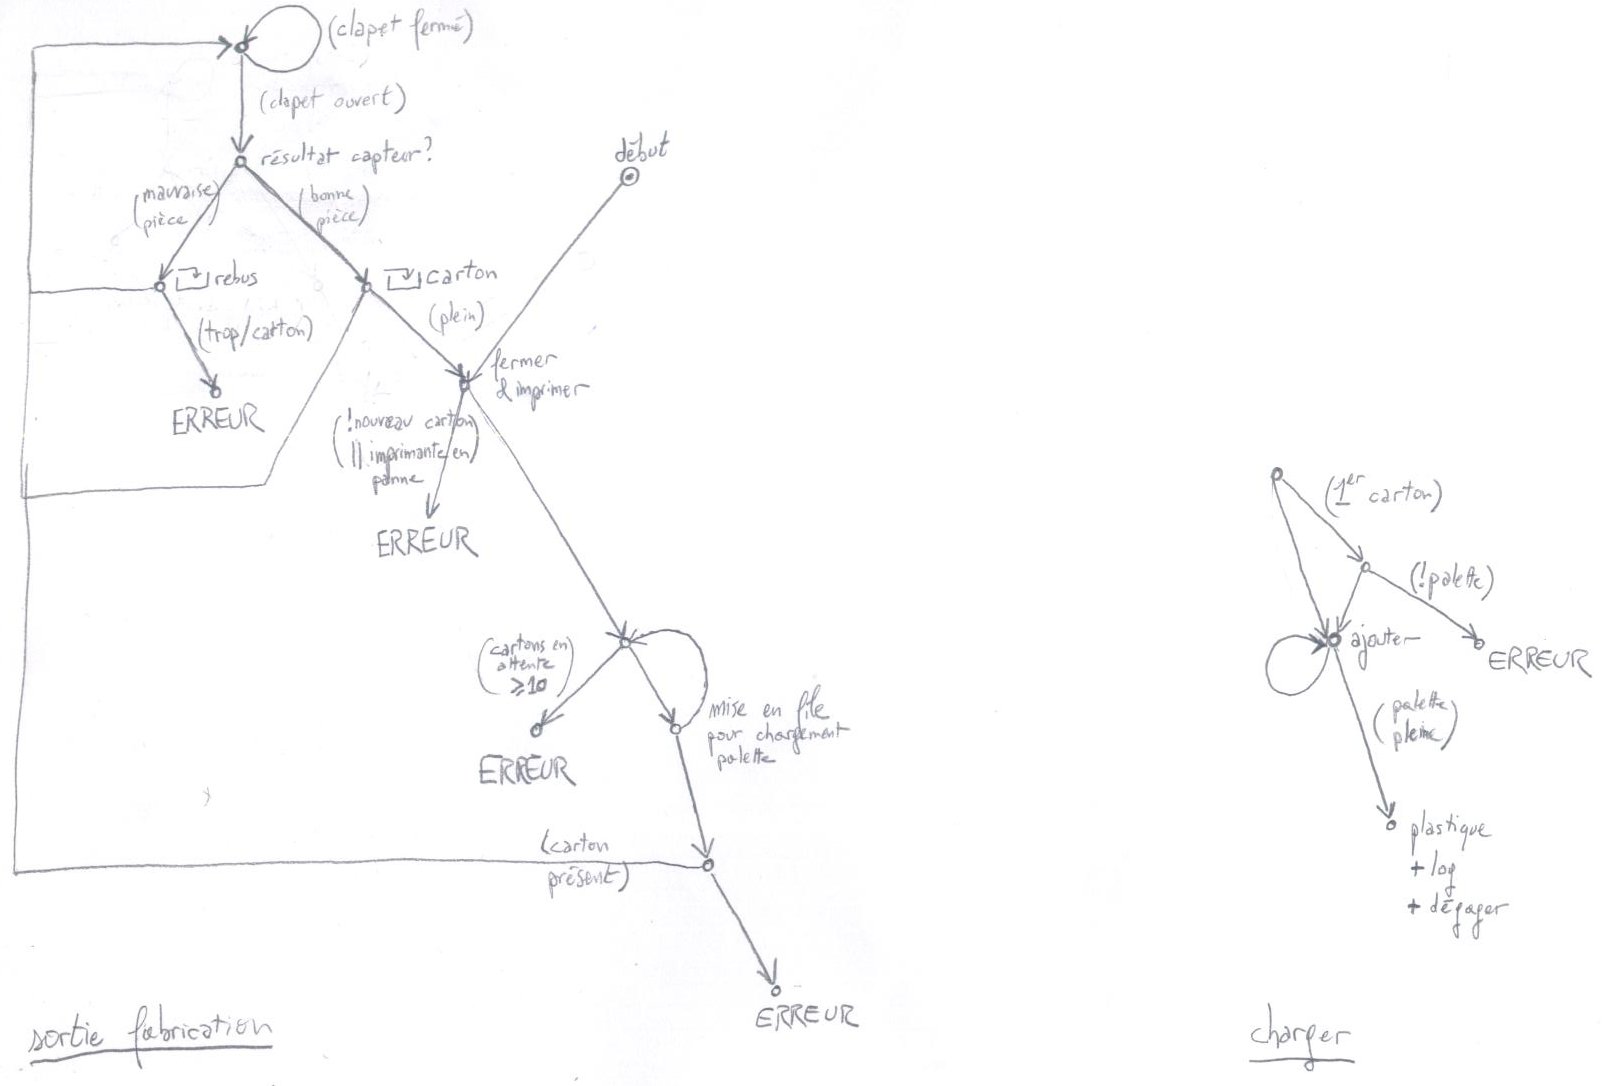 (clapet fermé)
(clapet ouvert)
résultat capteur?
début
(mauvaise
pièce)
(bonne
pièce)
rebus
carton
(plein)
(trop/carton)
ERREUR
fermer
& imprimer
(!nouveau carton
|| imprimante en
panne)
ERREUR
(cartons en
attente
≥10)
ERREUR
mise en file
pour chargement
palette
(carton
présent)
ERREUR
sortie fabrication
(1er carton)
(!palette)
ajouter
ERREUR
(palette
pleine)
plastique
+ log
+ dégager
charger